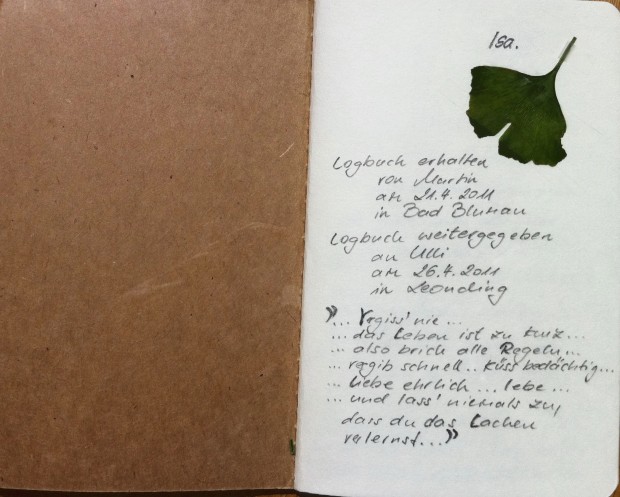 Isa.
Logbuch erhalten
von Martin
am 21.4.2011
in Bad Blumau
Logbuch weitergegeben
an Ulli
am 26.4.2011
in Leonding
»... Vergiss' nie ...
... das Leben ist zu kurz ...
... also brich alle Regeln ...
... vergib schnell .. küss bedächtig ...
... liebe ehrlich ... lebe ...
... und lass' niemals zu,
dass du das Lachen
verlernst...»